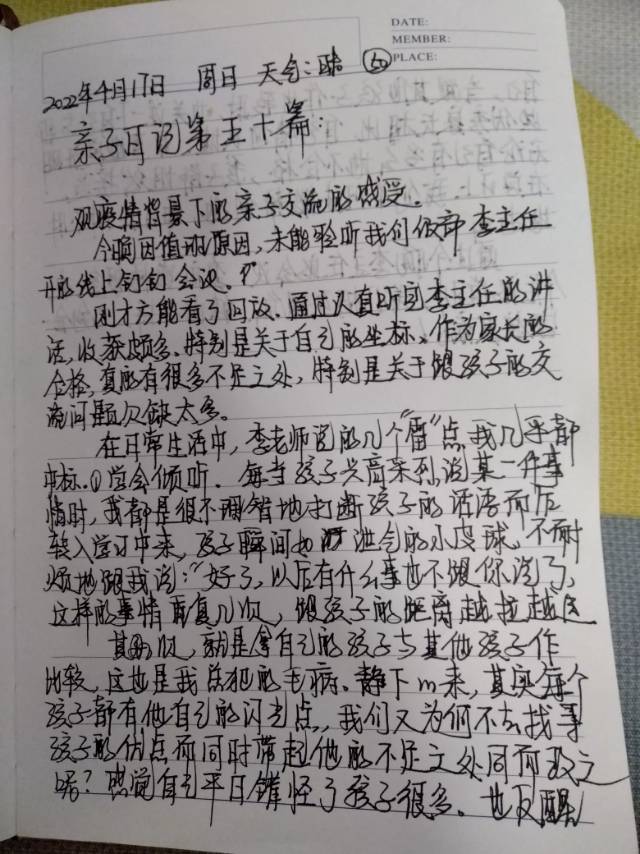 DATE:
MEMBER:
PLACE:
2022年4月17日 周日 天气:晴 50
亲子日记第五十篇:
观疫情背景下的亲子交流的感受。
今晚因值班原因,未能聆听我们级部李主任
开的线上钉钉会议。
刚才方能看了回放。通过认真听完李主任的讲
话,收获颇多。特别是关于自己的坐标。作为家长的
合格,真的有很多不足之处,特别是关于跟孩子的交
流问题欠缺太多。
在日常生活中,李老师说的几个“雷”点我几乎都
中标。①学会倾听。每当孩子兴高采烈说某一件事
情时,我都是很不理智地打断孩子的话语而后
转入学习中来,孩子瞬间如泄气的小皮球,不耐
烦地跟我说:“好了,以后有什么事也不跟你说了,
这样的事情再复几次,跟孩子的距离越拉越
其次,就是拿自己的孩子与其他孩子作
比较,这也是我总犯的毛病。静下心来,其实每个
孩子都有他自己的闪光点,我们又为何不去找寻
孩子的优点而同时带起他的不足之处同而
呢?感觉自己平日错怪了孩子很多。也反醒